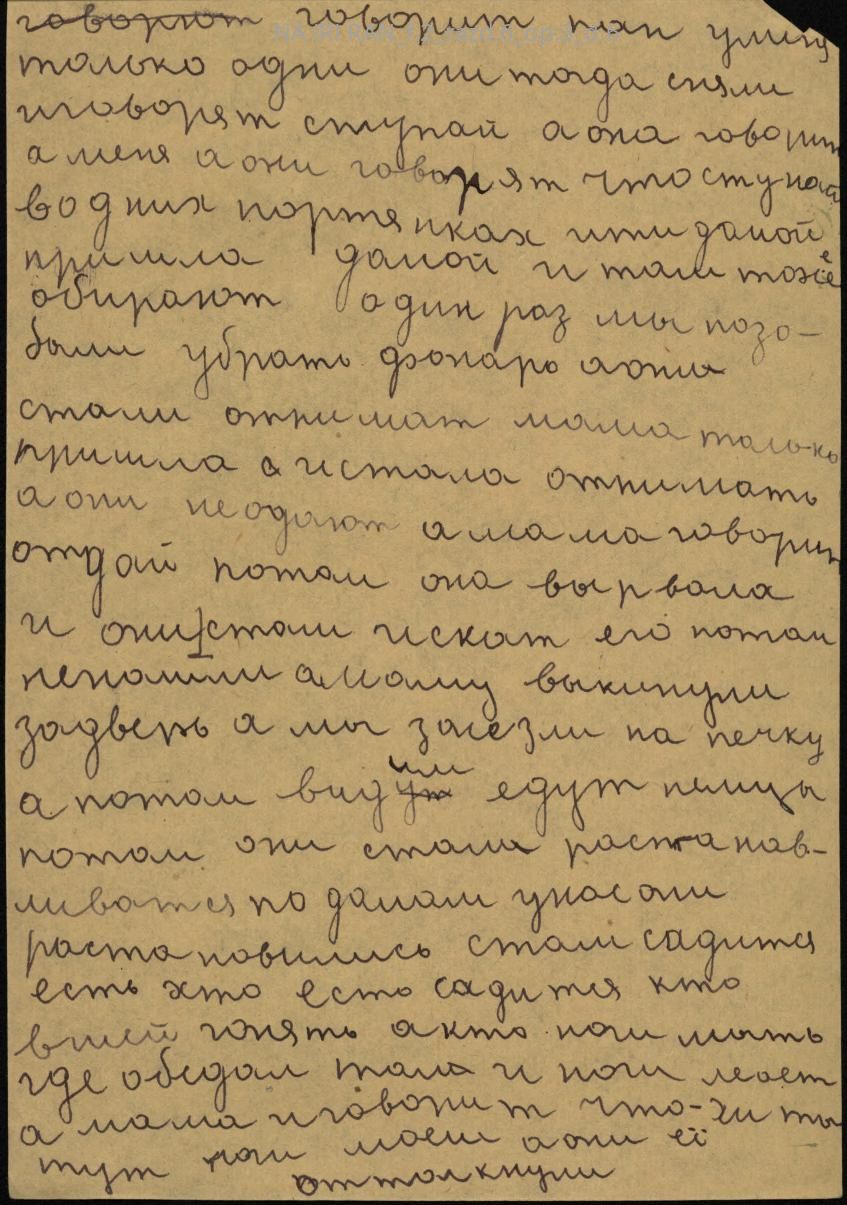 говорют говорит пан улиця
только одни они тогда сняли
иговорят ступай а она говорит
а меня а они говорят что ступай
водних портянках ити дамой
пришла дамой и там тоже
обирают один раз мы позо-
были убрать фонарь а они
стали отнимат мама только
пришла а и стала отнимать
а они неодают а мама говорит
отдай потом она вырвала
и они стали искат его потом
ненашли амаму выкинули
задверь а мы залезли на печку
а потом видим едут немцы
потом они стали растанав-
ливатся по дамам унасони
растановились стали садится
есть хто есть садится кто
вшей гонять а кто ноги мыть
где обедал там и ноги моет
а мама и говорит что-ли ты
тут ноги моеш а они её
оттолкнули